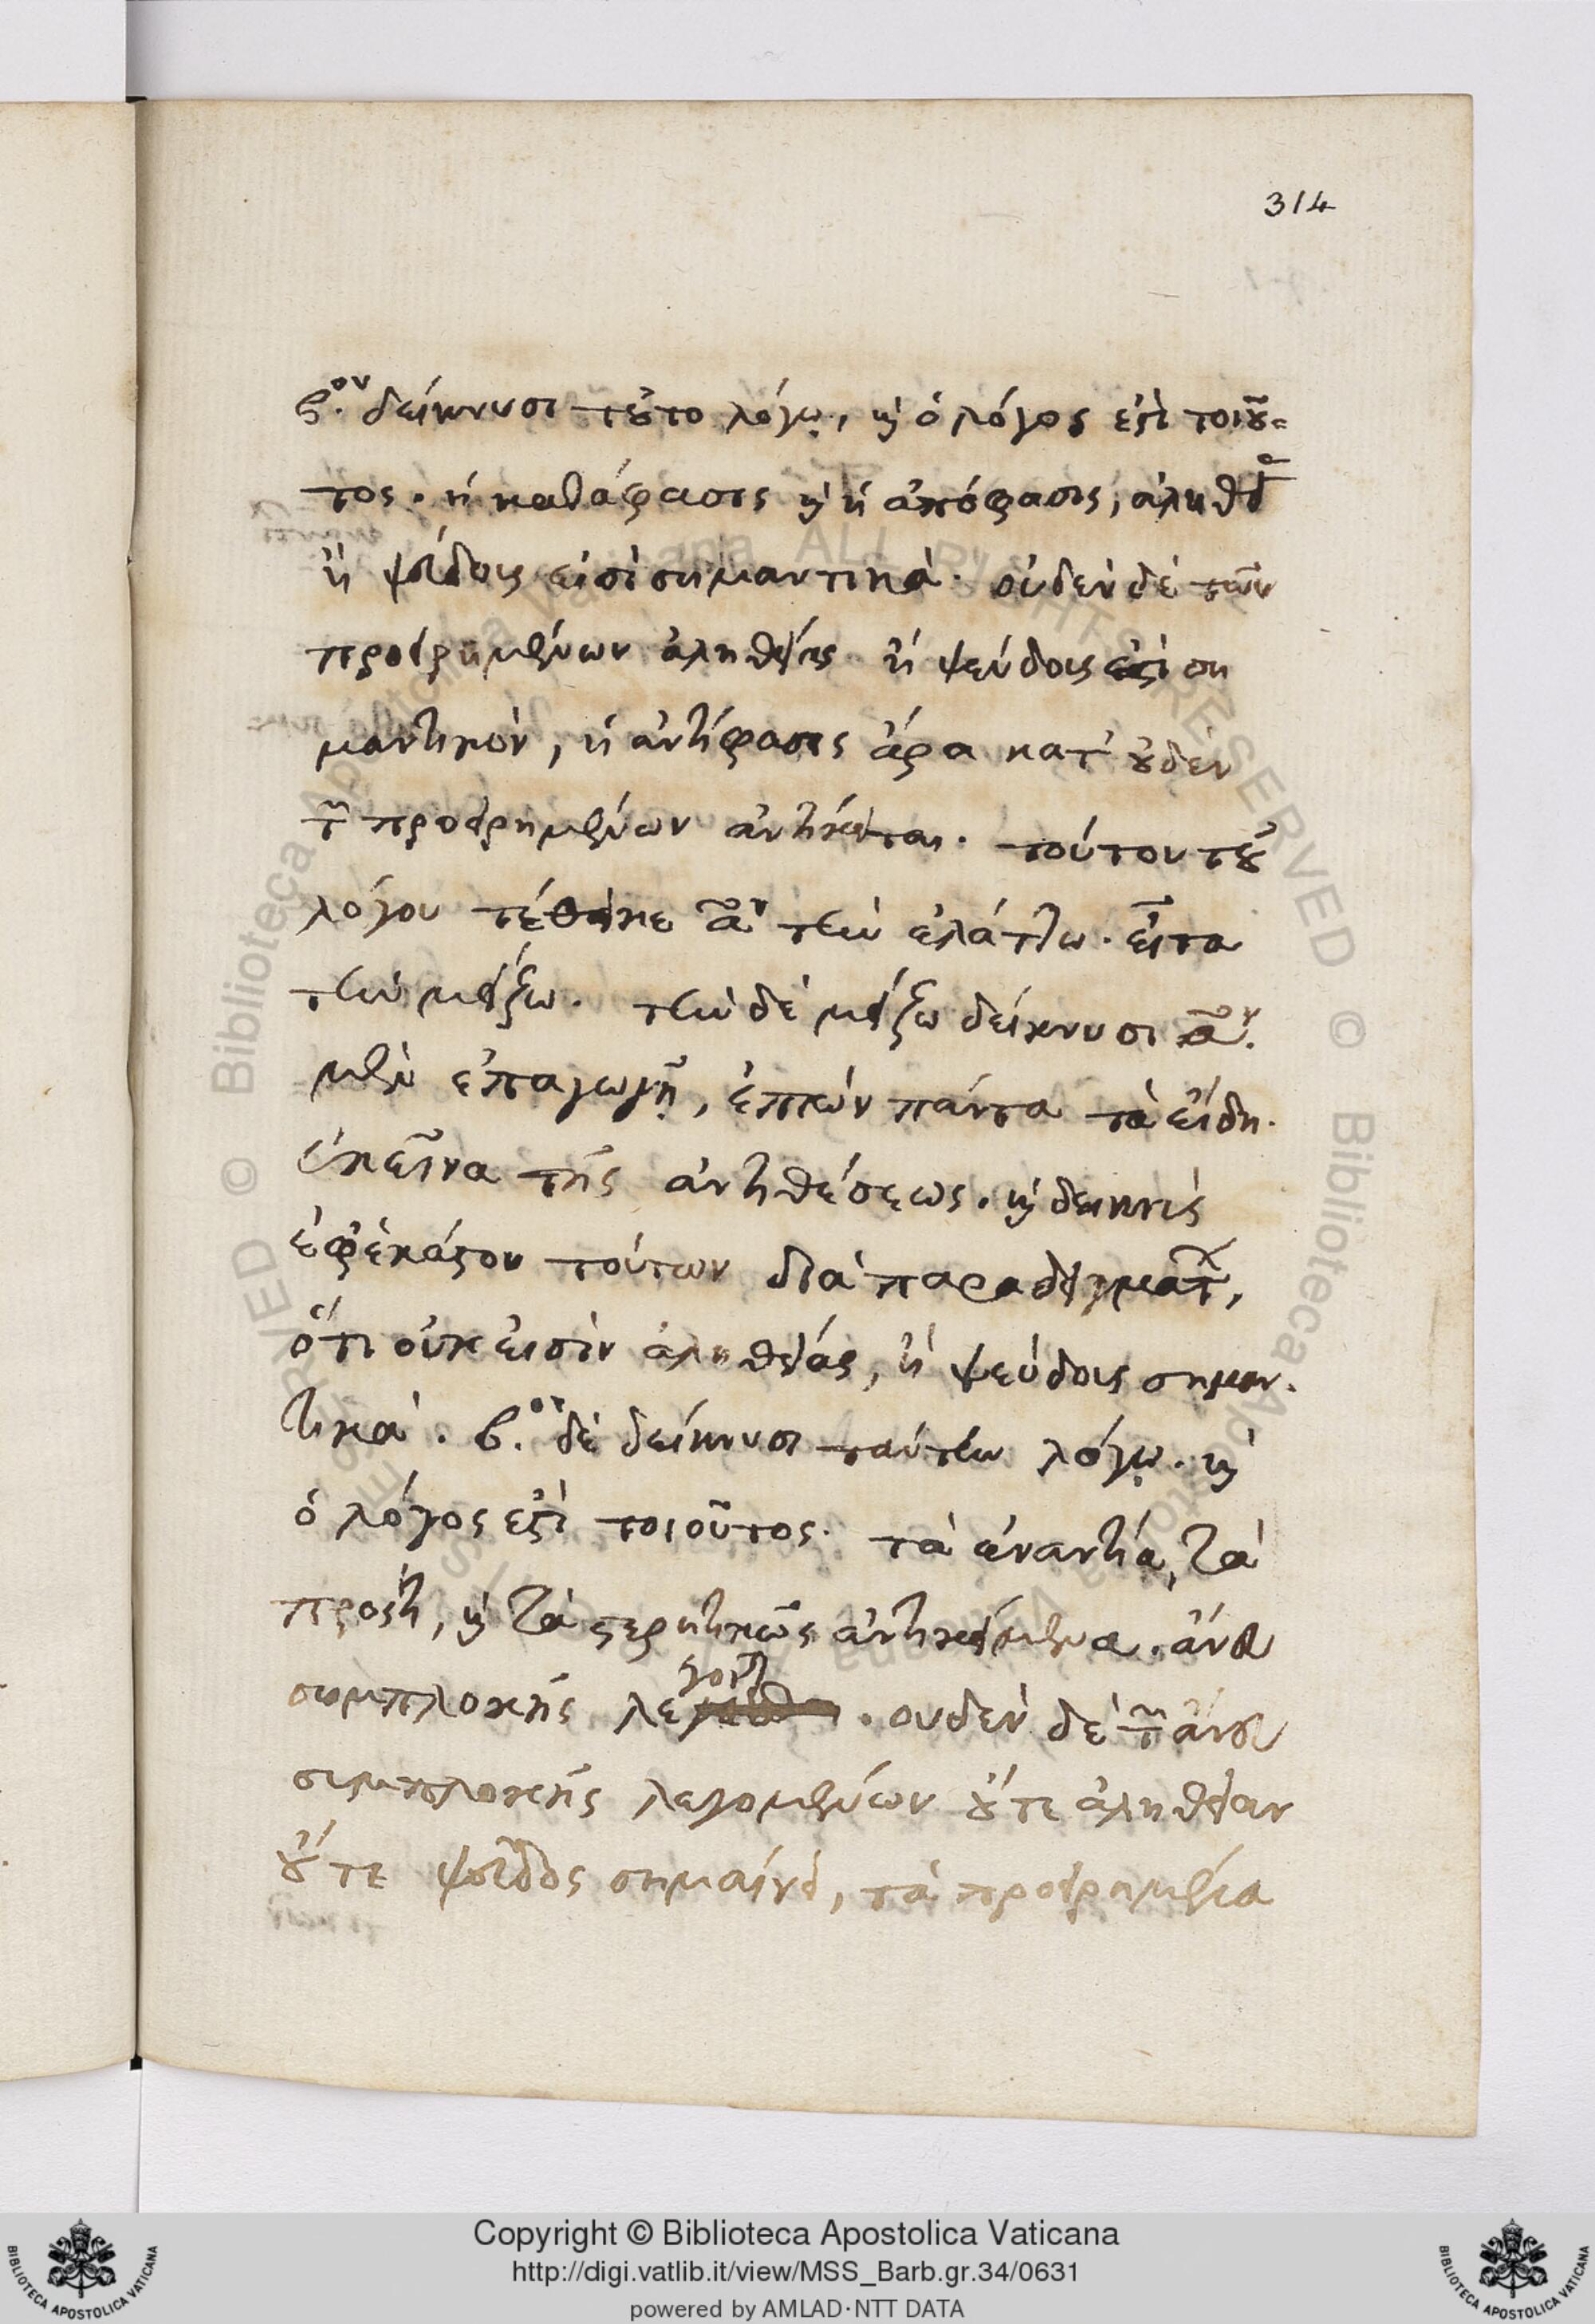 314
β.ον δείκνυσι τοῦτο λόγῳ, καὶ ὁ λόγος ἐστὶ τοιοῦ-
τος. ἡ κατάφασις καὶ ἡ ἀπόφασις, ἀληθεί
ἢ ψεύδους εἰσὶ σημαντικά. οὐδὲν δὲ τῶν
προειρημένων ἀληθείας ἢ ψεύδους ἐστὶ ση
μαντικὸν, ἡ ἀντίφασις ἄρα κατ' οὐδὲν
τῶν προειρημένων ἀντίκειται. τούτου τοῦ
λόγου τέθεικε αον τὴν ἐλάττω. εἶτα
τὴν μείζω. τὴν δὲ μείζω δείκνυσι αον.
μὲν ἐπαγωγῇ, ἐπιὼν πάντα τὰ εἴδη.
ἐκεῖνα τῆς ἀντιθέσεως. καὶ δεικνὺς
ἐφ' ἑκάστου τούτων διὰ παραδειγμάτ,
ὅτι οὐκ εἰσὶν ἀληθείας, ἢ ψεύδους σημαν.
τικά. β.ον δὲ δείκνυσι ταύτην λόγῳ. καὶ
ὁ λόγος ἐστὶ τοιοῦτος. τὰ ἐναντία, τὰ
πρός τι, καὶ τὰ στερητικῶς ἀντικείμενα. ἄνευ
συμπλοκῆς λέγονται. ουδὲν δὲ τῶν ἄνευ
συμπλοκῆς λεγομένων οὔτε ἀλήθειαν
οὔτε ψεῦδος σημαίνει, τὰ προειρημένα
Copyright © Biblioteca Apostolica Vaticana
http://digi.vatlib.it/view/MSS_Barb.gr.34/0631
powered by AMLAD·NTT DATA